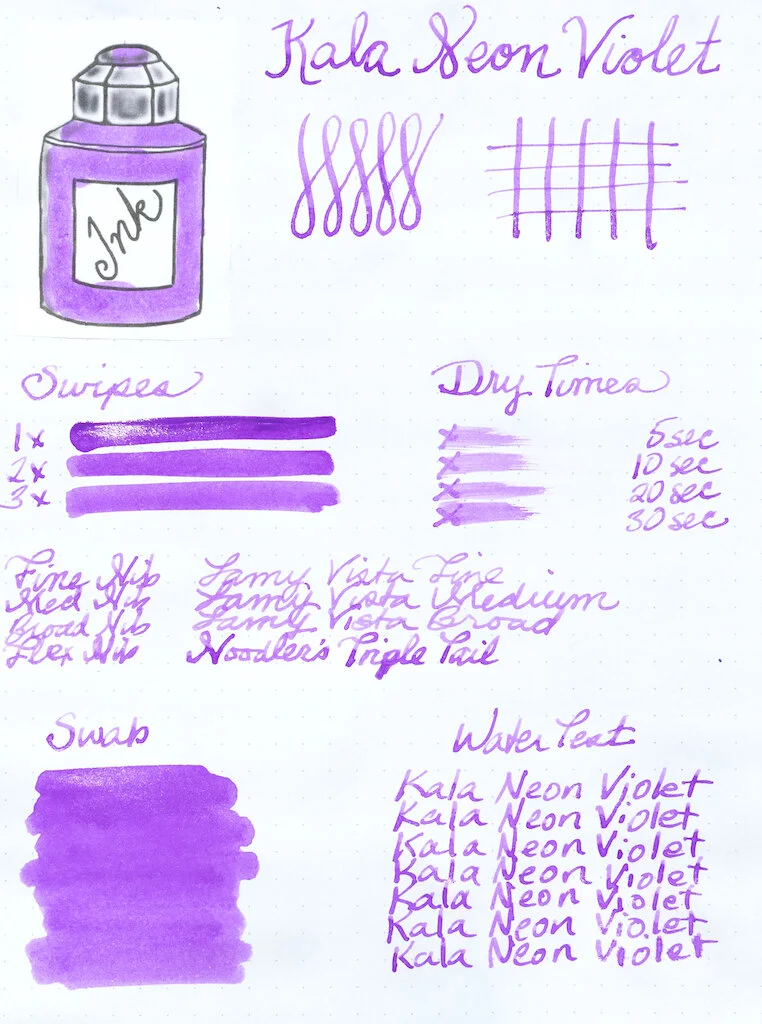 Kala Neon Violet
Ink
Swipes
1x
2x
3x
Dry Times
x 5 sec
x 10 sec
x 20 sec
x 30 sec
Fine Nib Lamy Vista Fine
Med Nib Lamy Vista Medium
Broad Nib Lamy Vista Broad
Flex Nib Noodler's Triple Tail
Swab
Water Test
Kala Neon Violet
Kala Neon Violet
Kala Neon Violet
Kala Neon Violet
Kala Neon Violet
Kala Neon Violet
Kala Neon Violet